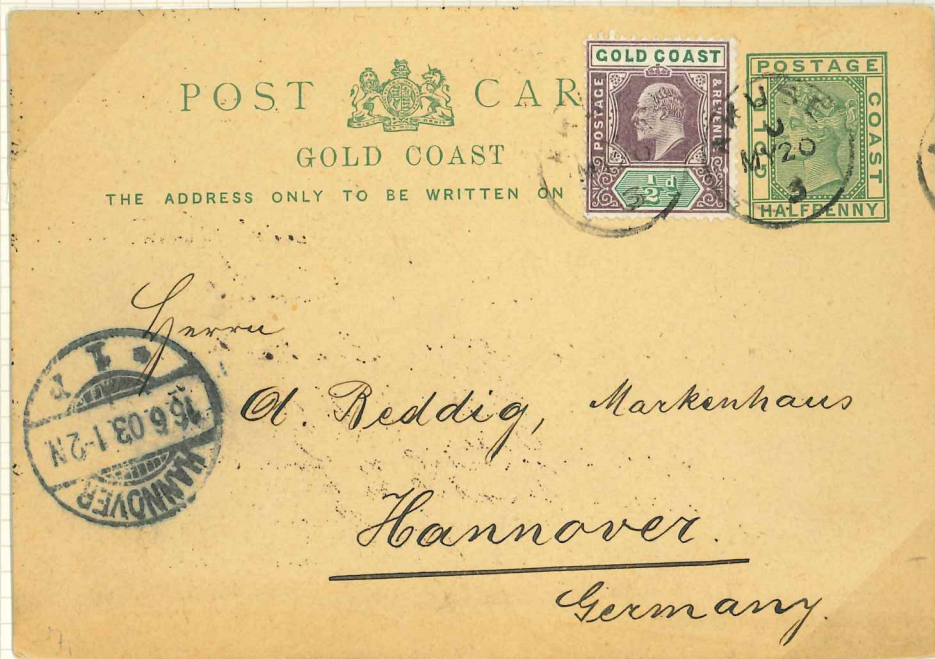 POST CAR
GOLD COAST
THE ADDRESS ONLY TO BE WRITTEN ON
GOLD COAST
POSTAGE
& REVENUE
½d
POSTAGE
GOLD
COAST
HALFPENNY
MY 20
3
MY 20
3
Herrn
A. Reddig, Markenhaus
Hannover.
Germany.
HANNOVER
16.6.03.1-2N
1 r